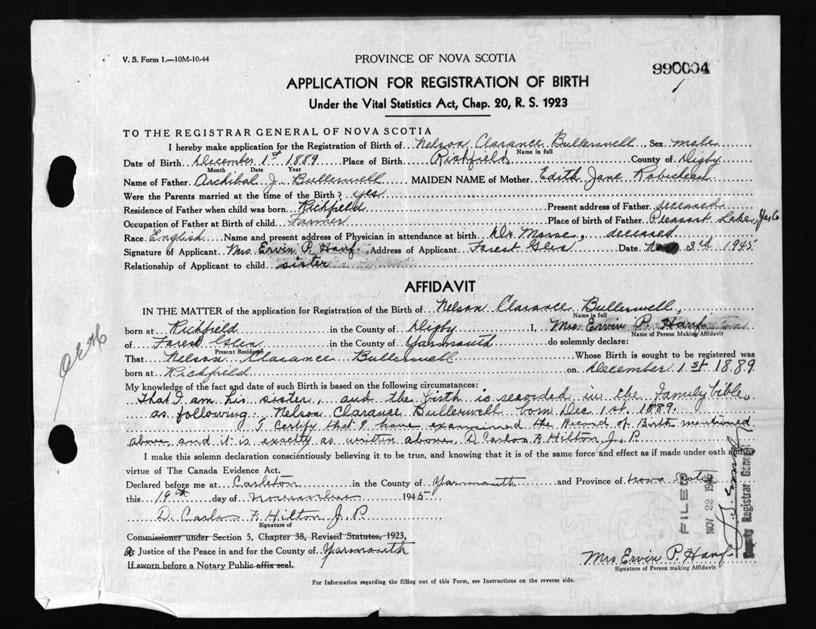 V. S. Form 1.—10M-10-44
PROVINCE OF NOVA SCOTIA
990004
APPLICATION FOR REGISTRATION OF BIRTH
Under the Vital Statistics Act, Chap. 20, R. S. 1923
TO THE REGISTRAR GENERAL OF NOVA SCOTIA
I hereby make application for the Registration of Birth of Nelson Clarance Bullerwell Sex male
Name in full
Date of Birth December 1st 1889 Place of Birth Richfield County of Digby
Month Date Year
Name of Father Archibal J. Bullerwell MAIDEN NAME of Mother Edith Jane
Were the Parents married at the time of the Birth? yes
Residence of Father when child was born Richfield Present address of Father deceased
Occupation of Father at Birth of child Farmer Place of birth of Father Pleasant Lake, Yar Co
Race English Name and present address of Physician in attendance at birth Dr. Morse, deceased
Signature of Applicant Mrs Ervin P. Hanf Address of Applicant Forest Glen Date 3rd 1945
Relationship of Applicant to child sister
AFFIDAVIT
IN THE MATTER of the application for Registration of the Birth of Nelson Clarance Bullerwell,
Name in full
born at Richfield in the County of Digby I, Mrs Ervin P. Hanf
Name of Person Making Affidavit
of Forest Glen in the County of Yarmouth do solemnly declare:
Present Residence
That Nelson Clarance Bullerwell Whose Birth is sought to be registered was
born at Richfield on December 1st 1889
My knowledge of the fact and date of such Birth is based on the following circumstances:
That I am his sister, and the birth is recorded in the family bible
as following. Nelson Clarance Bullerwell born Dec 1st. 1889.
I Certify that I have examined the Record of Birth mentioned
above and it is exactly as written above. D. Carlos F. Hilton J. P.
I make this solemn declaration conscientiously believing it to be true, and knowing that it is of the same force and effect as if made under oath and by
virtue of The Canada Evidence Act.
Declared before me at Carleton in the County of Yarmouth and Province of Nova Scotia
this 19th day of November 1945
D. Carlos F. Hilton J. P.
Signature of
Commissioner under Section 5, Chapter 38, Revised Statutes, 1923,
or Justice of the Peace in and for the County of Yarmouth
If sworn before a Notary Public affix seal.
FILED
NOV 22 1945
Deputy Registrar General
Mrs Ervin P. Hanf
Signature of Person making Affidavit
For Information regarding the filling out of this Form, see Instructions on the reverse side.